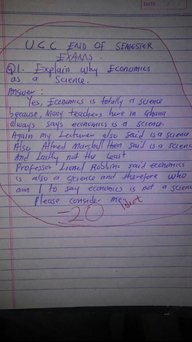 UGC END OF SEMESTER
EXAMS
Q1. Explain why Economics
as a Science.
Answer:
Yes, Economics is totally a science
because, Many teachers here in Ghana
always says economics is a science.
Again my Lecturer also said is a science
Also Alfred Marshall them said is a science
And lastly not the least
Professor Lionel Robbins said economics
is also a science and therefore who
am I to say economics is not a science
Please consider me
=20